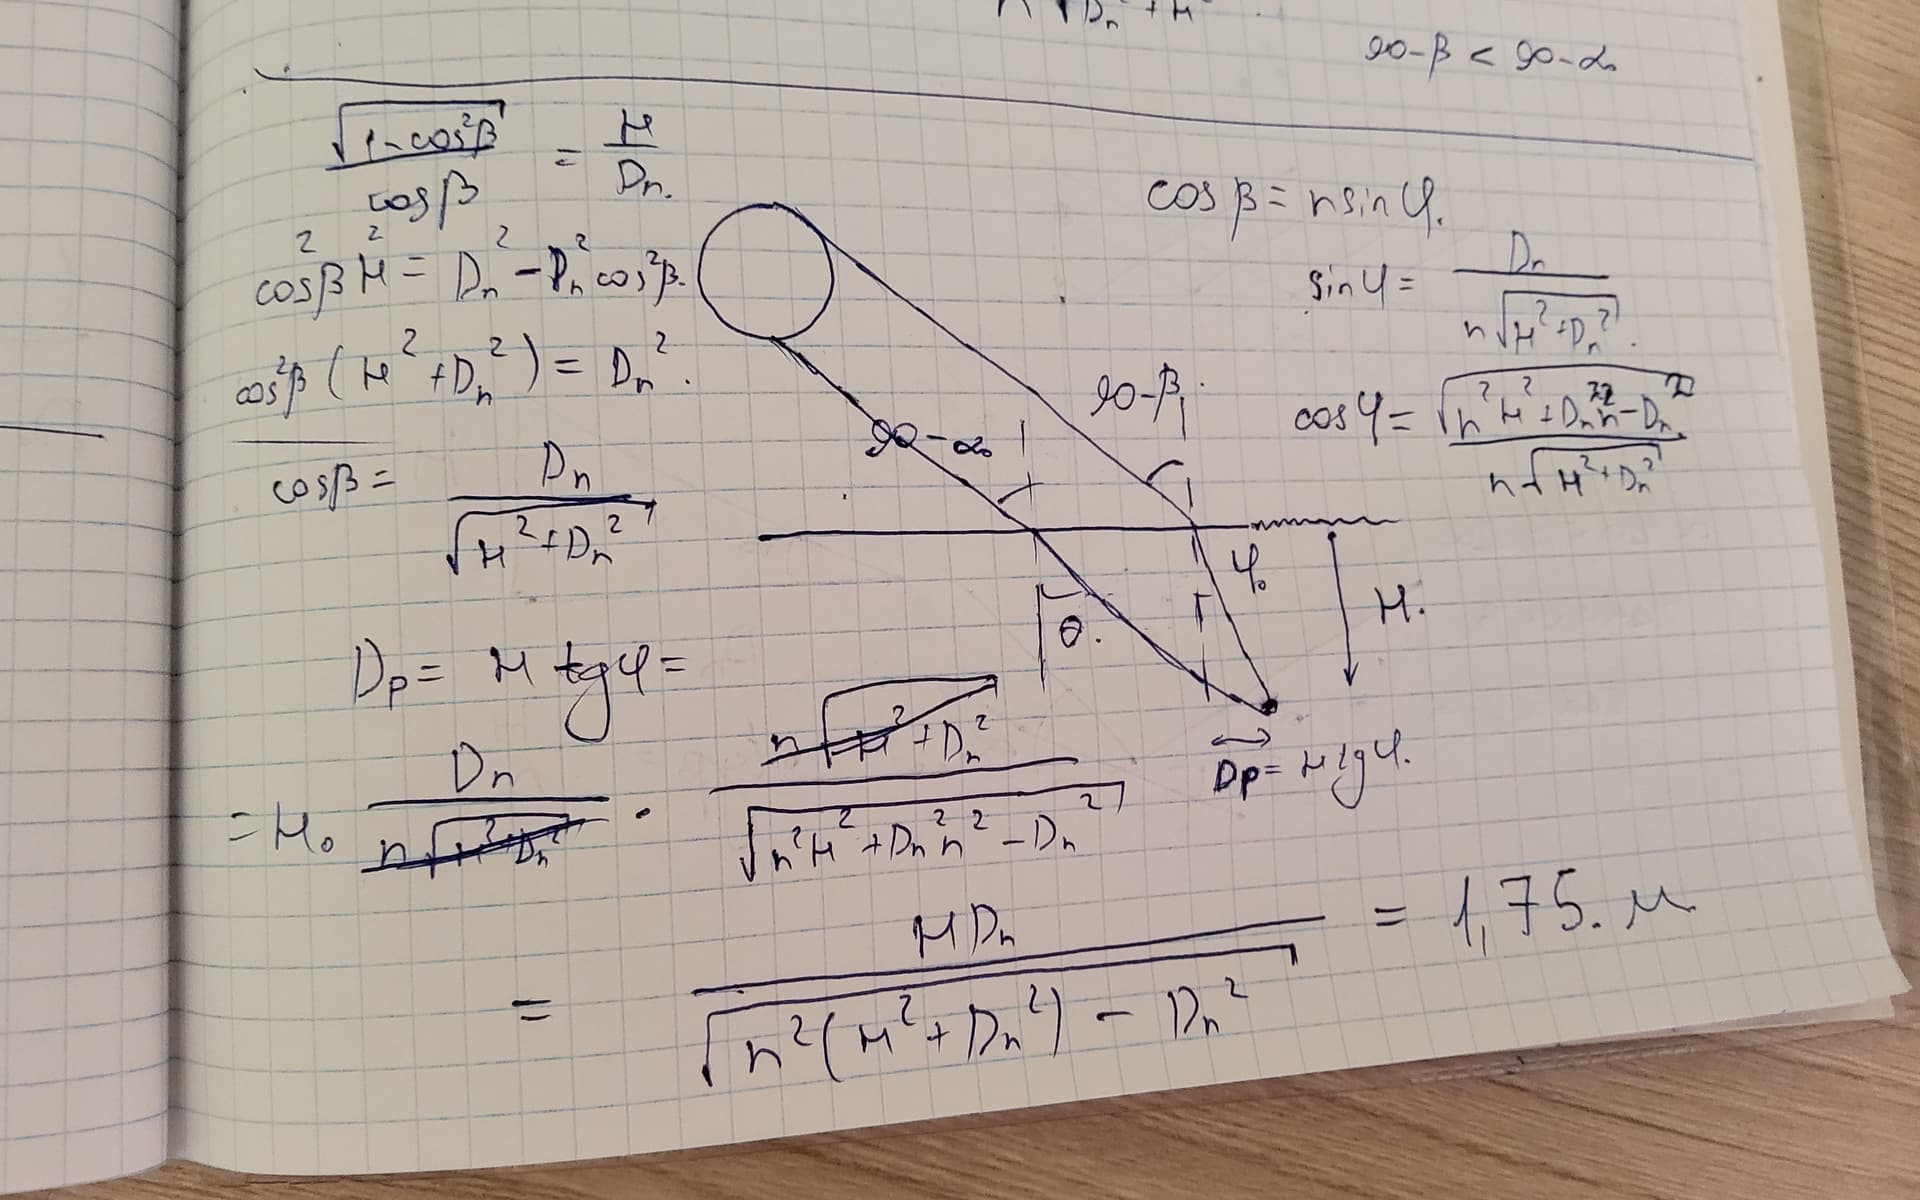 90-β < 90-α
√(1-cos²β) / cosβ = H / Dn.
cos²β H² = Dn² - Dn² cos²β.
cos²β (H² + Dn²) = Dn².
cosβ = Dn / √(H² + Dn²)
cosβ = n sinφ.
sinφ = Dn / n√(H² + Dn²).
cosφ = √(n²H² + Dn²n² - Dn²) / n√(H² + Dn²)
90-β
90-α
φ
θ.
H.
Dp = H tgφ.
Dp = H tgφ =
= H · Dn / n√(H² + Dn²) · n√(H² + Dn²) / √(n²H² + Dn²n² - Dn²)
= HDn / √(n²(H² + Dn²) - Dn²) = 1,75. м